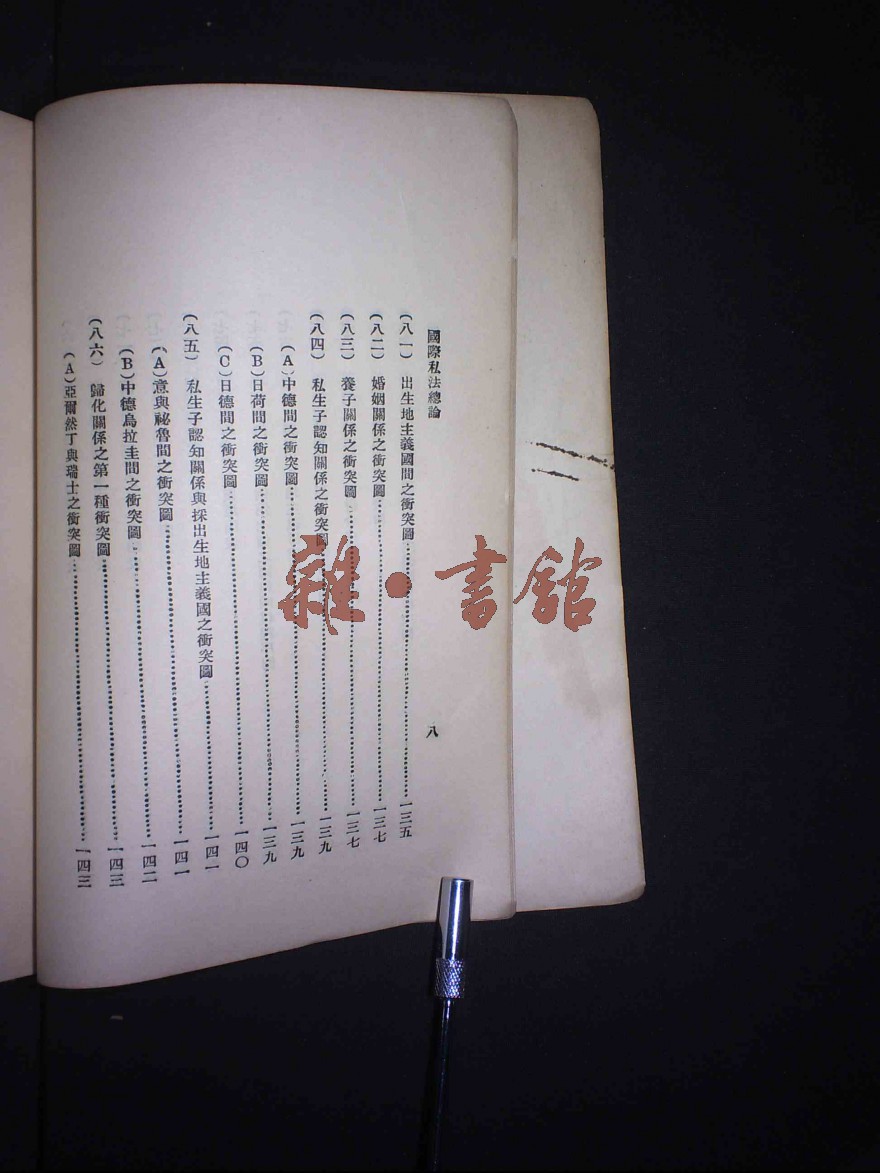 國際私法總論
八
(八一) 出生地主義國間之衝突圖⋯⋯一三五
(八二) 婚姻關係之衝突圖⋯⋯一三七
(八三) 養子關係之衝突圖⋯⋯一三七
(八四) 私生子認知關係之衝突圖⋯⋯一三九
(A)中德間之衝突圖⋯⋯一三九
(B)日荷間之衝突圖⋯⋯一三九
(C)日德間之衝突圖⋯⋯一四〇
(八五) 私生子認知關係與採出生地主義國之衝突圖⋯⋯一四一
(A)意與祕魯間之衝突圖⋯⋯一四一
(B)中德烏拉圭間之衝突圖⋯⋯一四二
(八六) 歸化關係之第一種衝突圖⋯⋯一四三
(A)亞爾然丁與瑞士之衝突圖⋯⋯一四三
雜·書館